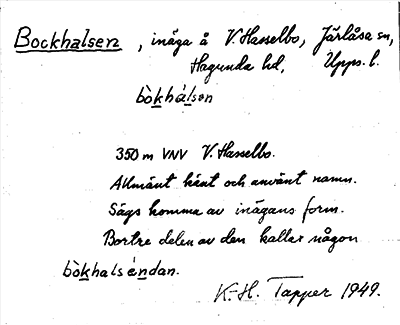 Bockhalsen, inäga å V. Hasselbo, Järlåsa sn,
Hagunda hd, Upps. l.
bòkhálsen
350 m VNV V. Hasselbo.
Allmänt känt och använt namn.
Sägs komma av inägans form.
Bortre delen av den kallar någon
bòkhalséndan.
K.-H. Tapper 1949.